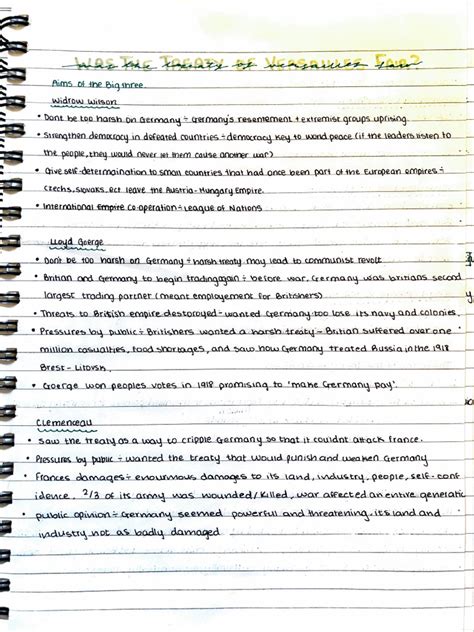 Was The Treaty of Versailles Fair?
Aims of the Big three.
Widrow Wilson
• Dont be too harsh on Germany ÷ Germany's resentement + extremist groups uprising.
• Strengthen democracy in defeated countries ÷ democracy key to world peace (if the leaders listen to
the people, they would never let them cause another war)
• Give self-determination to small countries that had once been part of the European empires ÷
Czechs, slovaks, ect leave the Austria-Hungary Empire.
• International Empire Co-operation ÷ League of Nations
Lloyd Goerge
• Don't be too harsh on Germany ÷ harsh treaty may lead to communist revolt
• Britian and Germany to begin trading again ÷ before war, Germany was britians second
largest trading partner (meant employement for Britishers)
• Threats to British empire destoroyed - wanted Germany too lose its navy and colonies.
• Pressures by public ÷ Britishers wanted a harsh treaty - Britian suffered over one
million casualties, food shortages, and saw how Germany treated Russia in the 1918
Brest - Litovsk.
• Goerge won peoples votes in 1918 promising to 'make Germany pay'.
Clemenceau
• Saw the treaty as a way to cripple Germany so that it couldnt attack france.
• Pressures by public ÷ wanted the treaty that would punish and weaken Germany
• Frances damages ÷ enourmous damages to its land, industry, people, self-conf
idence. 2/3 of its army was wounded/killed, war affected an entire generatic
• public opinion ÷ Germany seemed powerful and threatening, its land and
industry not as badly damaged